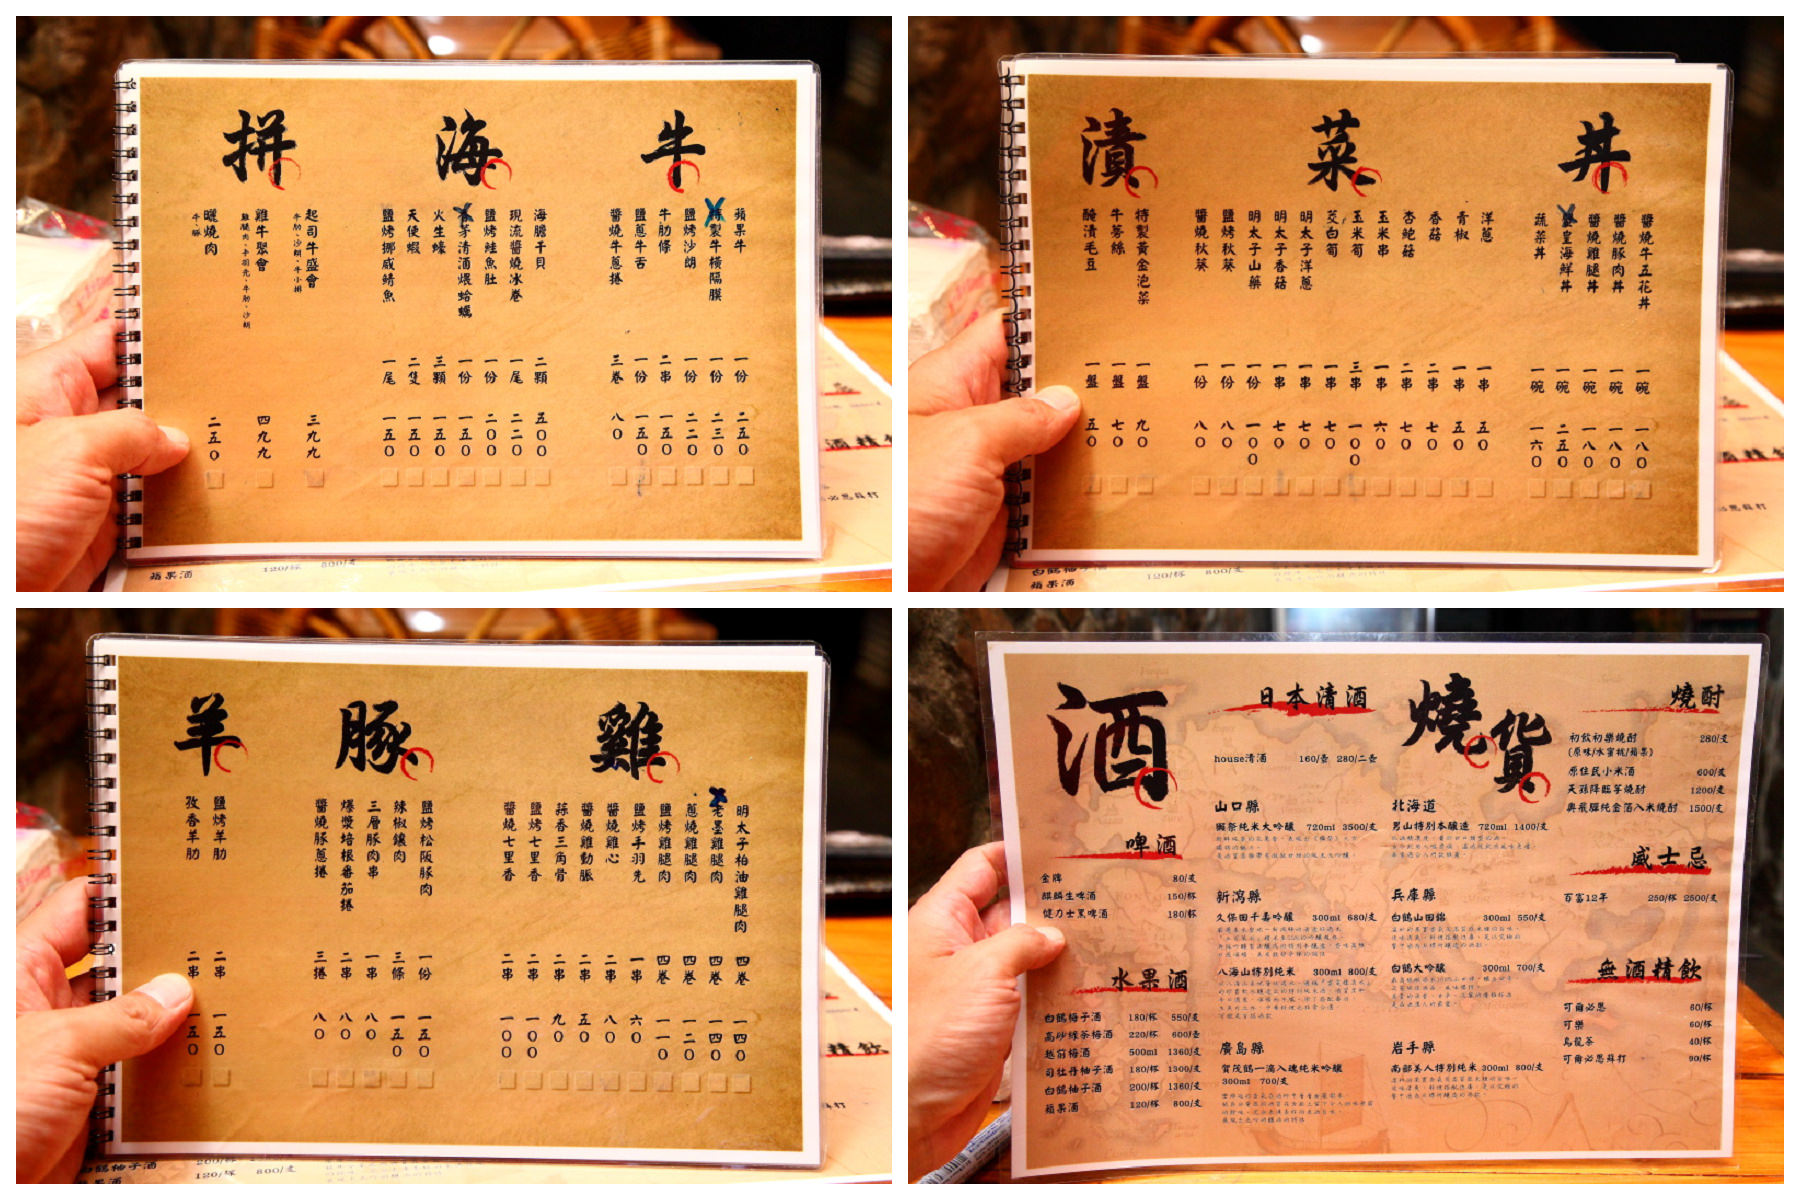 牛
蘋果牛 一份 二五0
特製牛橫隔膜 一份 二三0
鹽烤沙朗 一份 二二0
牛肋條 二串 一五0
鹽蔥牛舌 一份 一五0
醬燒牛蔥捲 三卷 八0
海
海膽干貝 二顆 五00
現流醬燒冰卷 一尾 二二0
鹽烤鮭魚肚 一份 二00
香茅清酒煨蛤蠣 一份 一五0
火生蠔 三顆 一五0
天使蝦 二隻 一五0
鹽烤挪威鯖魚 一尾 一五0
拼
起司牛盛會 三九九
牛肋、沙朗、牛小排
雞牛聚會 四九九
雞腿肉、手羽先、牛肋、沙朗
曬燒肉 二五0
牛、豚
蘋果酒 120/杯 800/支
丼
醬燒牛五花丼 一碗 一八0
醬燒豚肉丼 一碗 一八0
醬燒雞腿丼 一碗 一八0
皇海鮮丼 一碗 二五0
蔬菜丼 一碗 一六0
菜
洋蔥 一串 五0
青椒 一串 五0
香菇 二串 七0
杏鮑菇 二串 七0
玉米串 一串 六0
玉米筍 三串 一00
茭白筍 一串 七0
明太子洋蔥 一串 七0
明太子香菇 一串 七0
明太子山藥 一份 一00
鹽烤秋葵 一份 八0
醬燒秋葵 一份 八0
漬
特製黃金泡菜 一盤 九0
牛蒡絲 一盤 七0
醃漬毛豆 一盤 五0
白鶴柚子酒
蘋果酒 120/杯 800/支
雞
明太子柏油雞腿肉 四卷 一四0
老墨雞腿肉 四卷 一四0
蔥燒雞腿肉 四卷 一二0
鹽烤雞腿肉 四卷 一一0
鹽烤手羽先 一串 六0
醬燒雞心 二串 八0
醬燒雞動脈 二串 五0
蒜香三角骨 二串 九0
鹽烤七里香 二串 一00
醬燒七里香 二串 一00
豚
鹽烤松阪豚肉 一份 一五0
辣椒鑲肉 三條 一五0
三層豚肉串 一串 八0
爆漿培根番茄捲 二串 八0
醬燒豚蔥捲 三捲 八0
羊
鹽烤羊肋 二串 一五0
孜香羊肋 二串 一五0
白鶴柚子酒 200/杯
蘋果酒 120/杯 800/支
酒
啤酒
金牌 80/支
麒麟生啤酒 150/杯
健力士黑啤酒 180/杯
水果酒
白鶴梅子酒 180/杯 550/支
高砂綠茶梅酒 220/杯 600/壺
越前梅酒 500ml 1360/支
司牡丹柚子酒 180/杯 1300/支
白鶴柚子酒 200/杯 1360/支
蘋果酒 120/杯 800/支
日本清酒
house清酒 160/壺 280/二壺
山口縣
獺祭純米大吟釀 720ml 3500/支
新瀉縣
久保田千壽吟釀 300ml 680/支
八海山特別純米 300ml 800/支
廣島縣
賀茂鶴一滴入魂純米吟釀
300ml 700/支
燒貨
北海道
男山特別本釀造 720ml 1400/支
兵庫縣
白鶴山田錦 300ml 550/支
白鶴大吟釀 300ml 700/支
岩手縣
南部美人特別純米 300ml 800/支
燒酎
初飲初樂燒酎 280/支
(原味/水蜜桃/蘋果)
原住民小米酒 600/支
天孫降臨芋燒酎 1200/支
奧飛驒純金箔入米燒酎 1500/支
威士忌
百富12年 250/杯 2500/支
無酒精飲
可爾必思 60/杯
可樂 60/杯
烏龍茶 40/杯
可爾必思蘇打 90/杯